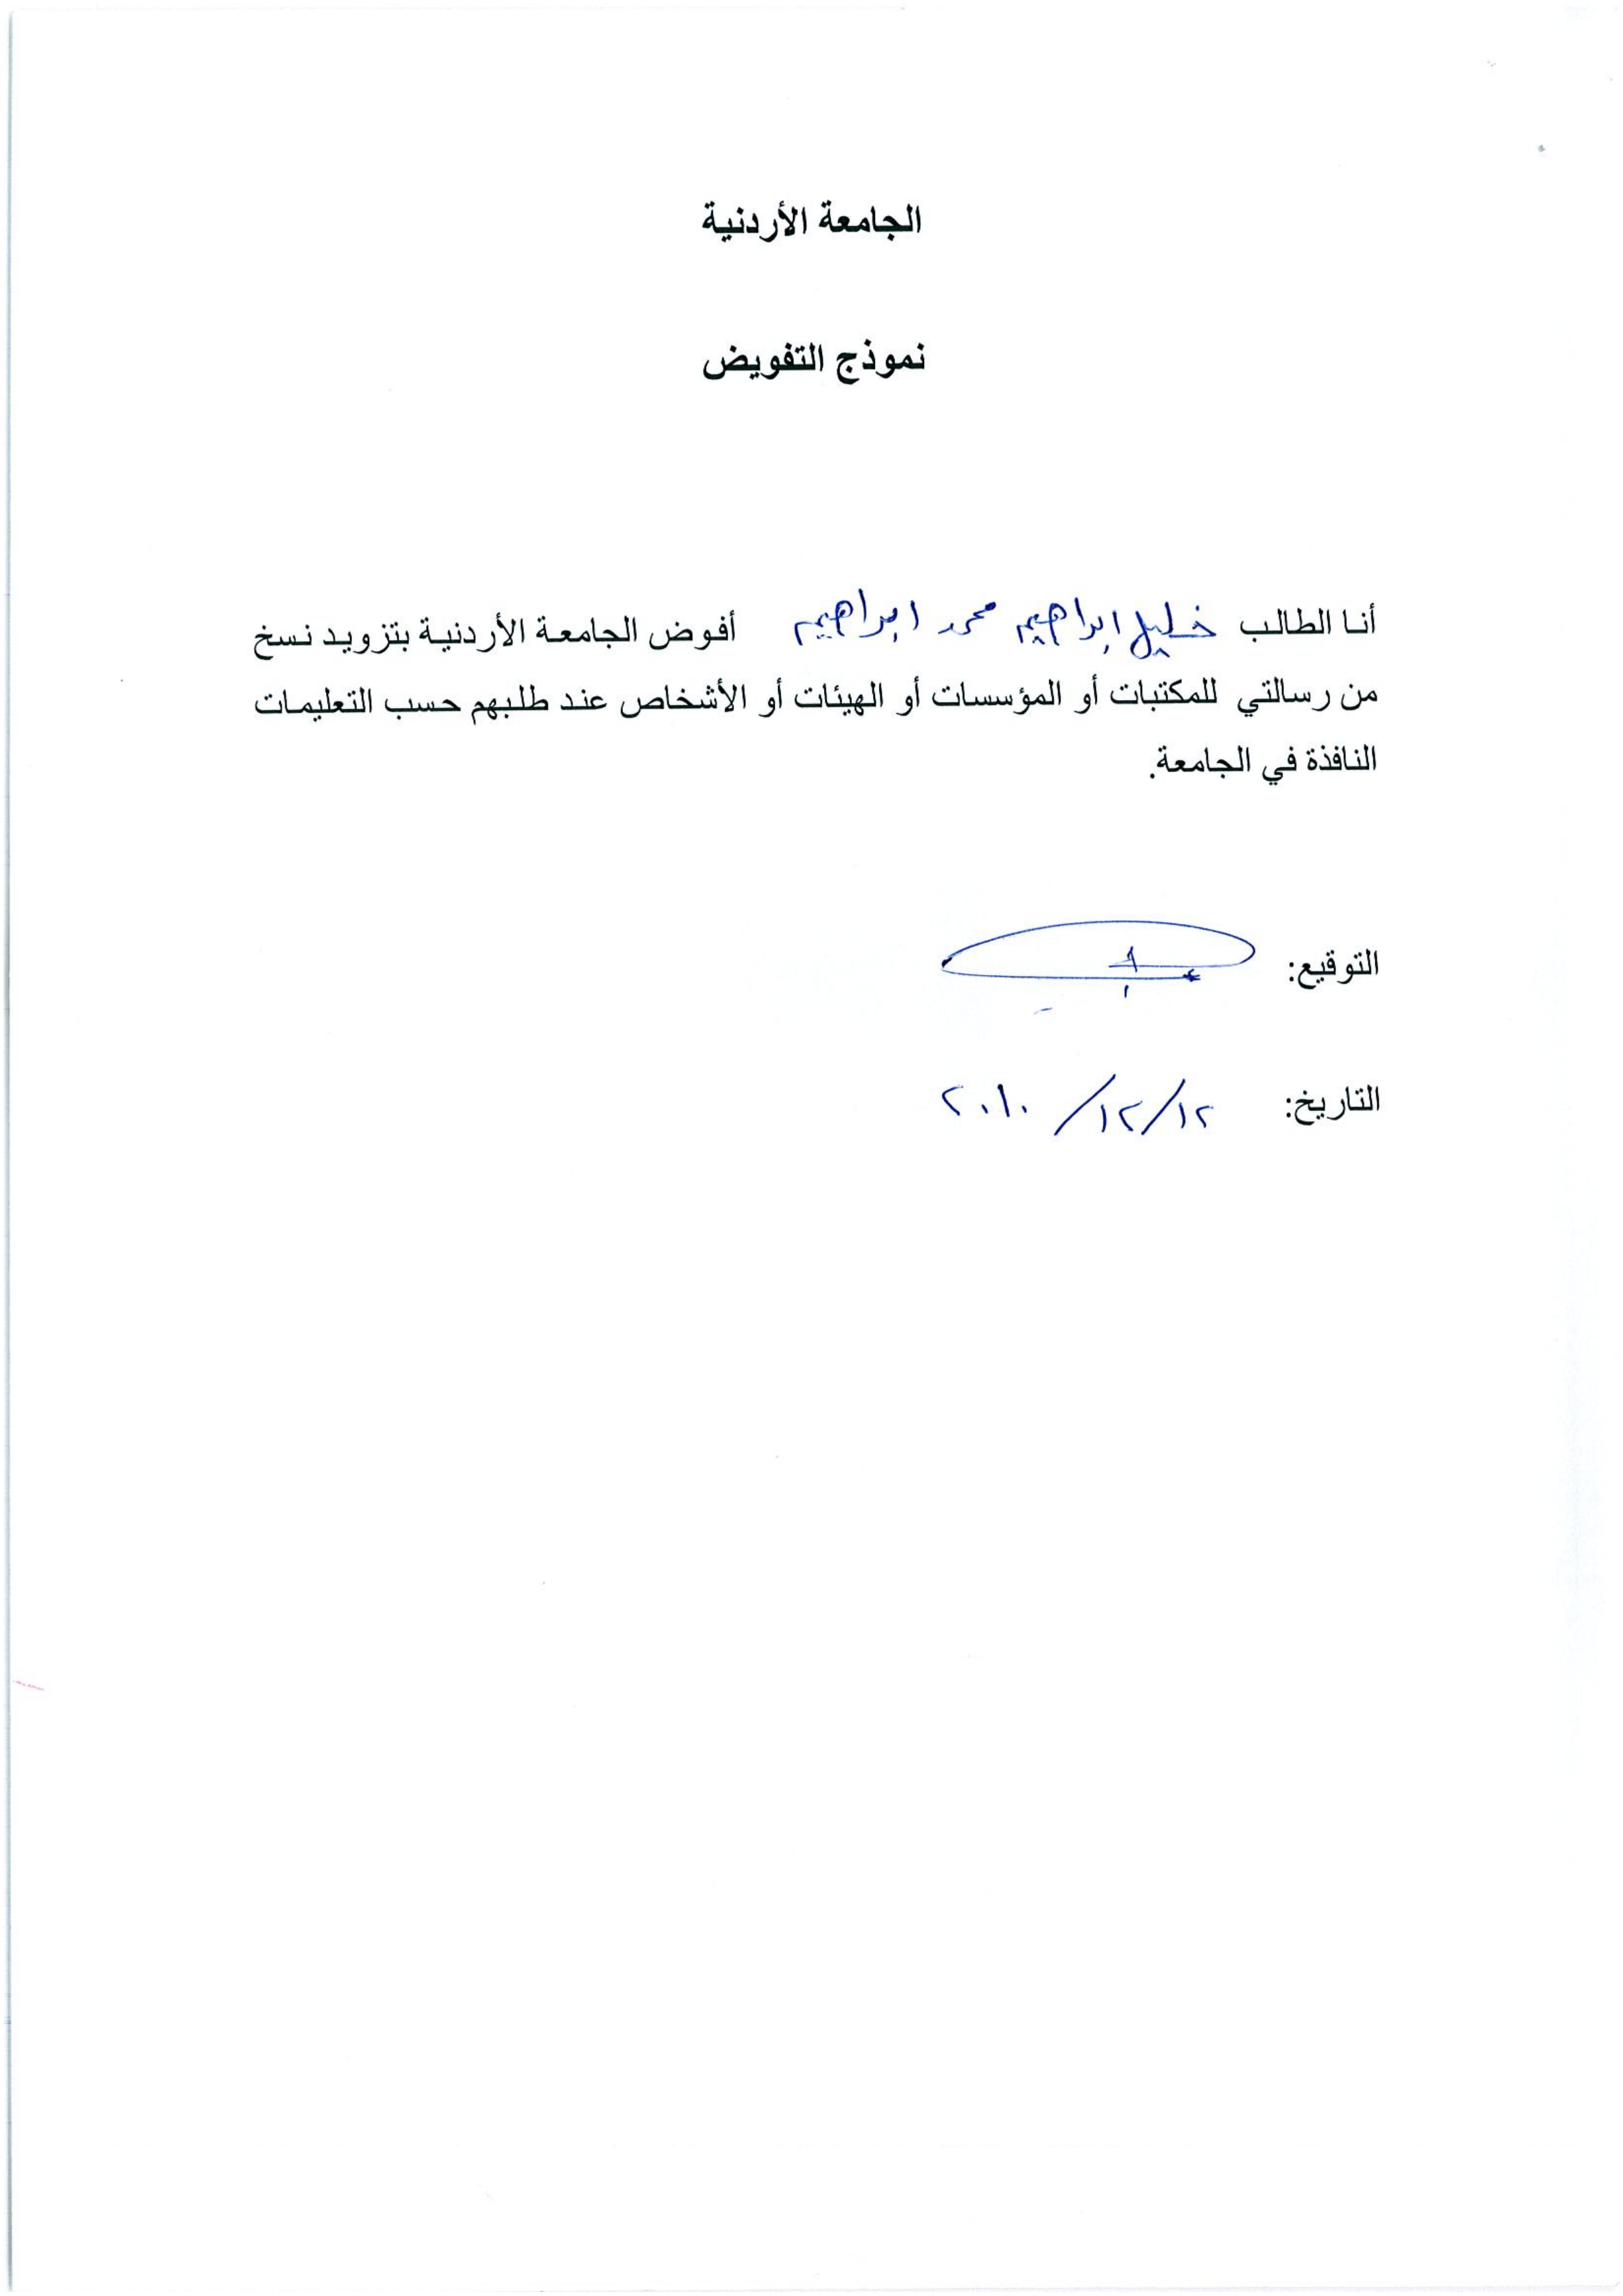 الجامعة الأردنية
نموذج التفويض
أنا الطالب خليل ابراهيم محمد ابراهيم أفوض الجامعة الأردنية بتزويد نسخ
من رسالتي للمكتبات أو المؤسسات أو الهيئات أو الأشخاص عند طلبهم حسب التعليمات
النافذة في الجامعة.
التوقيع:
التاريخ: ١٢/١٢/ ٢٠١٠